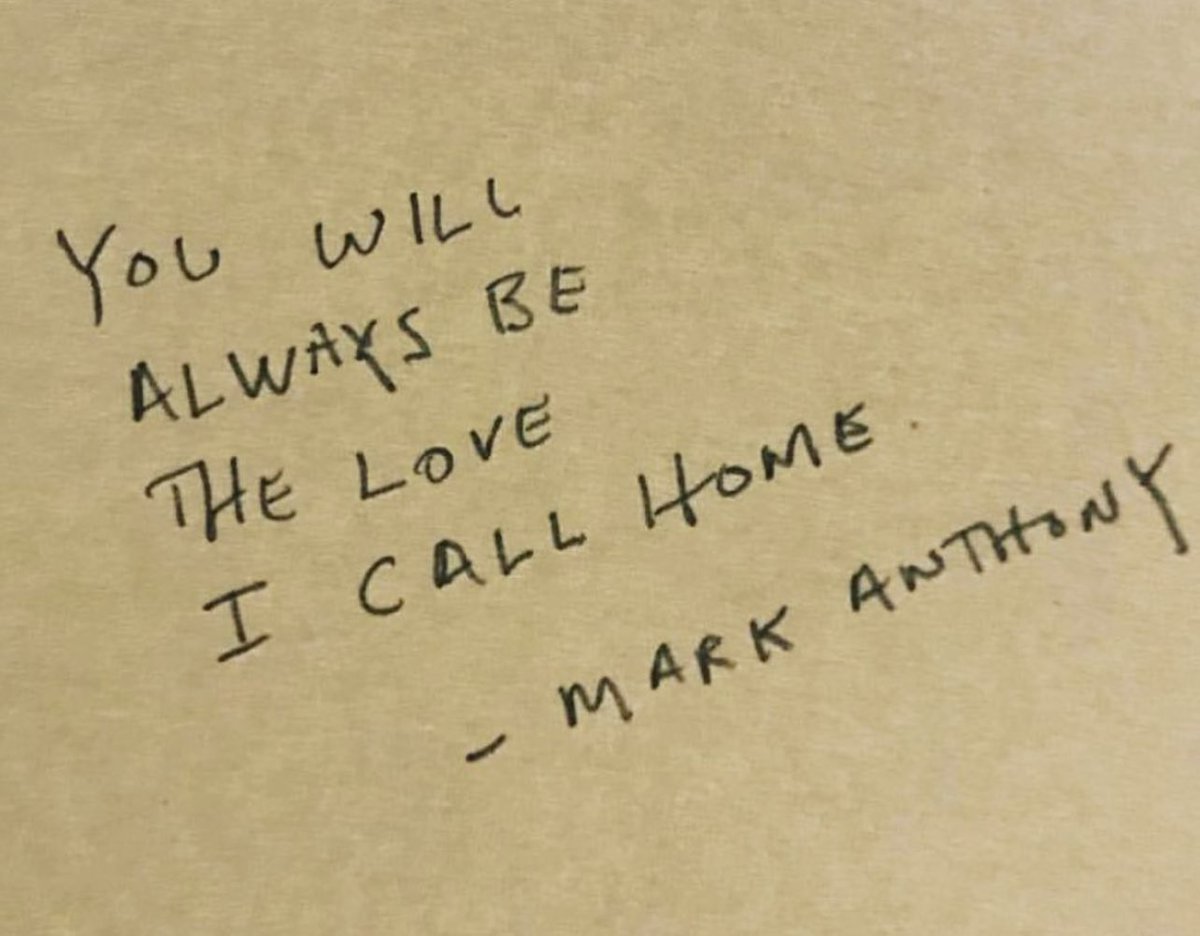 YOU WILL
ALWAYS BE
THE LOVE
I CALL HOME.
- MARK ANTHONY